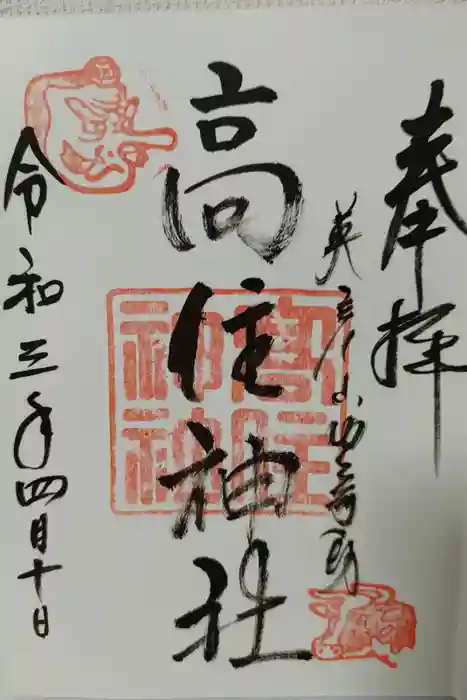 奉拝
英彦山豊前坊
高住神社
高住神社
令和三年四月十日